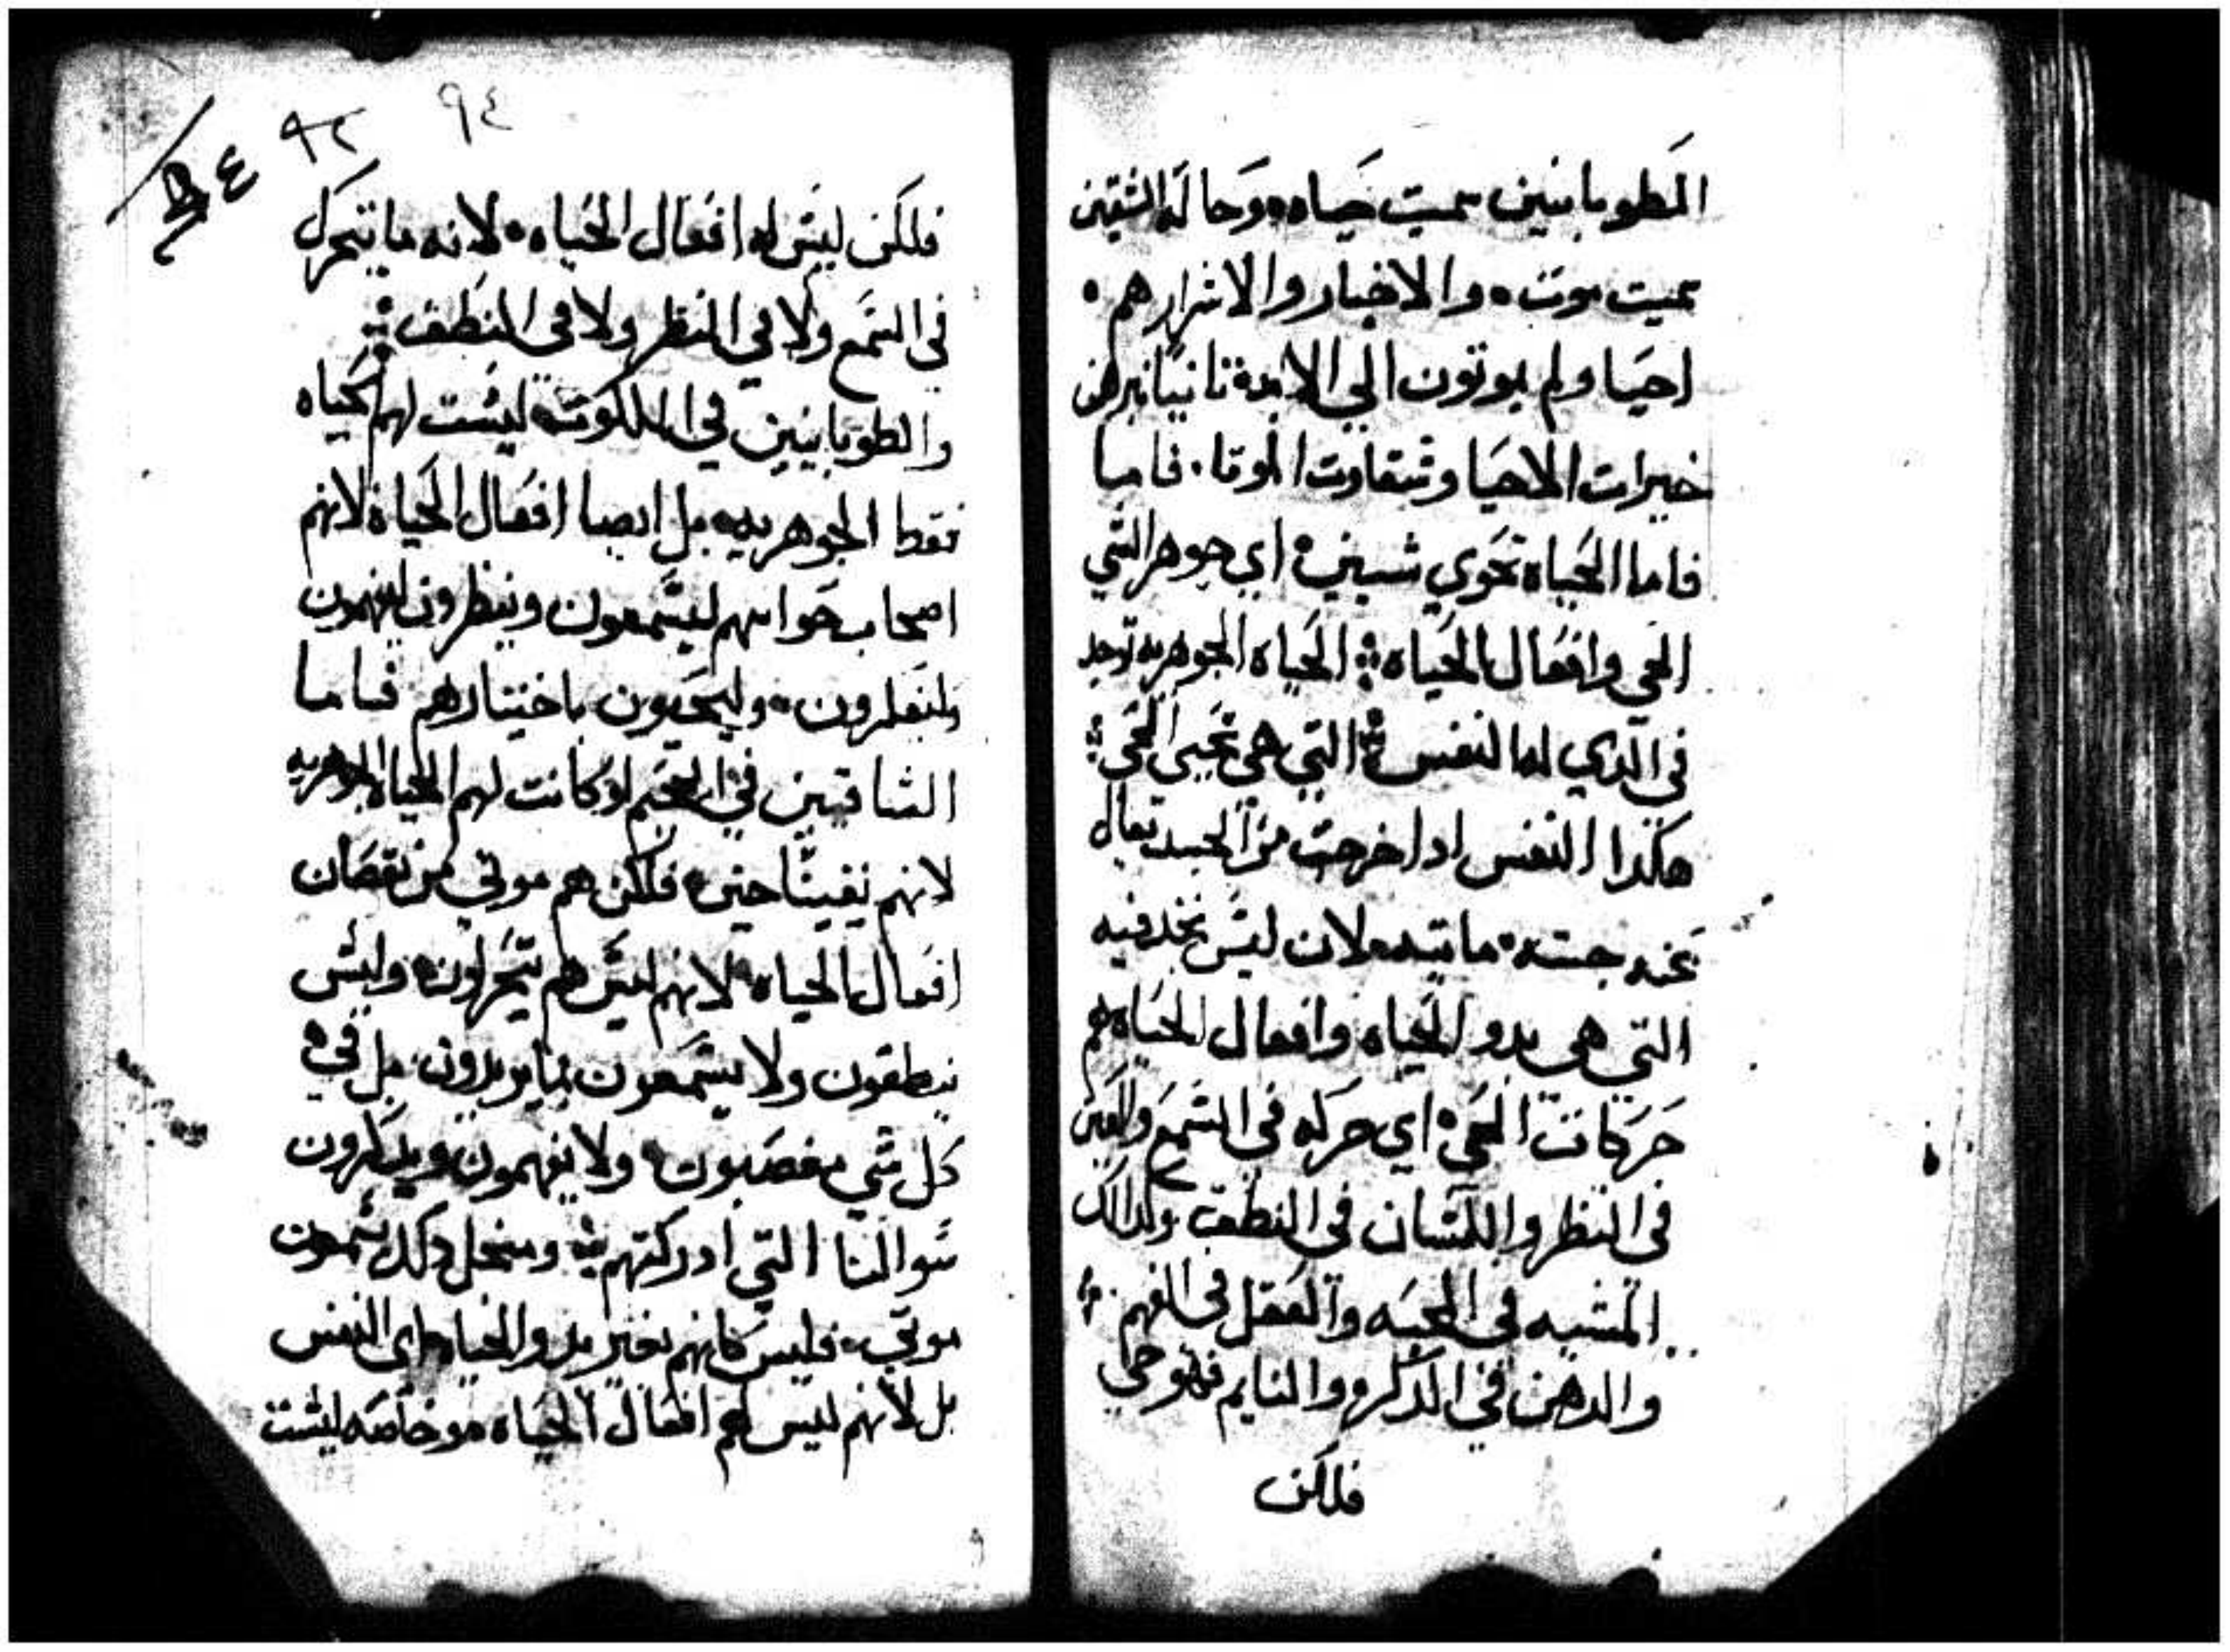 المطوبانيين سميت حياه وحالة الشقيين
سميت موت والاخيار والاشرار هم
احيا ولم يموتون الي الابد ثانيا نبرهن
خيرات الاحيا وشقاوت الموتا فاما
فاما الحياه تحوي شيين اي جوهر الشي
الحي وافعال الحياه الحياه الجوهريه توجد
في الذي لها لنفس التي هي تحيي الحي
هكدا النفس ادا خرجت من الجسد تقال
عنه جسه مايته لان ليس نجد فيه
التي هي بدو الحياه وافعال الحياه هم
حركات الحي اي حركه في السمع والعين
في النظر واللسان في النطق وكدالك
المشيه في المحبه والعقل في الفهم
والدهن في الدكر والنايم فهو حي
فلكن
٩٤ ٩٢
فلكن ليس له افعال الحياه لانه ما يتحرك
في السمع ولا في النظر ولا في النطق
والطوبانيين في الملكوت ليست لهم الحياه
فقط الجوهريه بل ايضا افعال الحياة لانهم
اصحاب حواسهم ليسمعون وينظرون ليفهمون
وليفكرون وليحبون باختيارهم فاما
الشاقيين في الجحيم لو كانت لهم الحياه الجوهريه
لانهم نفيسًا حين فلكن هم موتي من نقصان
افعال الحياه لانهم ليس هم يتحركون وليس
ينطقون ولا يسمعون بما يريدون بل في
كل شي مغصبون ولا يفهمون ويدكرون
سوا لنا التي ادركتهم ومنحل دلك يسمون
موتي فليس كانهم بغير بدو الحياه اي النفس
بل لانهم ليس لهم افعال الحياه وخاصه ليست